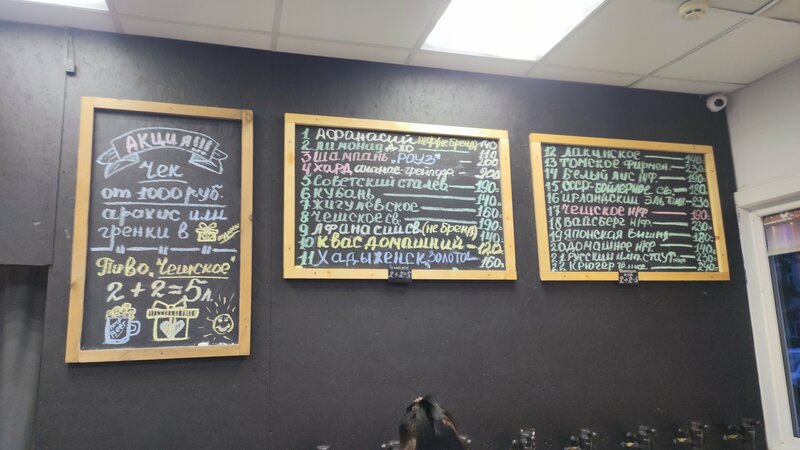 АКЦИЯ!!!
Чек
от 1000 руб.
арахис или
гренки в подарок
Пиво "Чешское"
2+2=5л.
1 Афанасий н/ф (не бренд) 140
2 Лимонад
3 Шампань "РОУЗ"
4 Хард ананас-грейпфр.
5 Советский сталев 190-
6 Кубань 140-
7 Жигулёвское 160-
8 Чешское св. 190-
9 Афанасий св (не бренд)
10 Квас домашний 120
11 Хадыженск. Золото 160-
2+2=5
12 Лакинское 140-
13 Томское фирмен. 230-
14 Белый лис н/ф 190-
15 СССР-бойлерное св. 180-
16 Ирландский эль тёмн.
17 Чешское н/ф 190-
18 Вайсберг н/ф 180-
19 Японская вишня
20 Домашнее н/ф
21 Русский имп. стаут 230-
22 Крюгер тёмное 240-
2+2=5